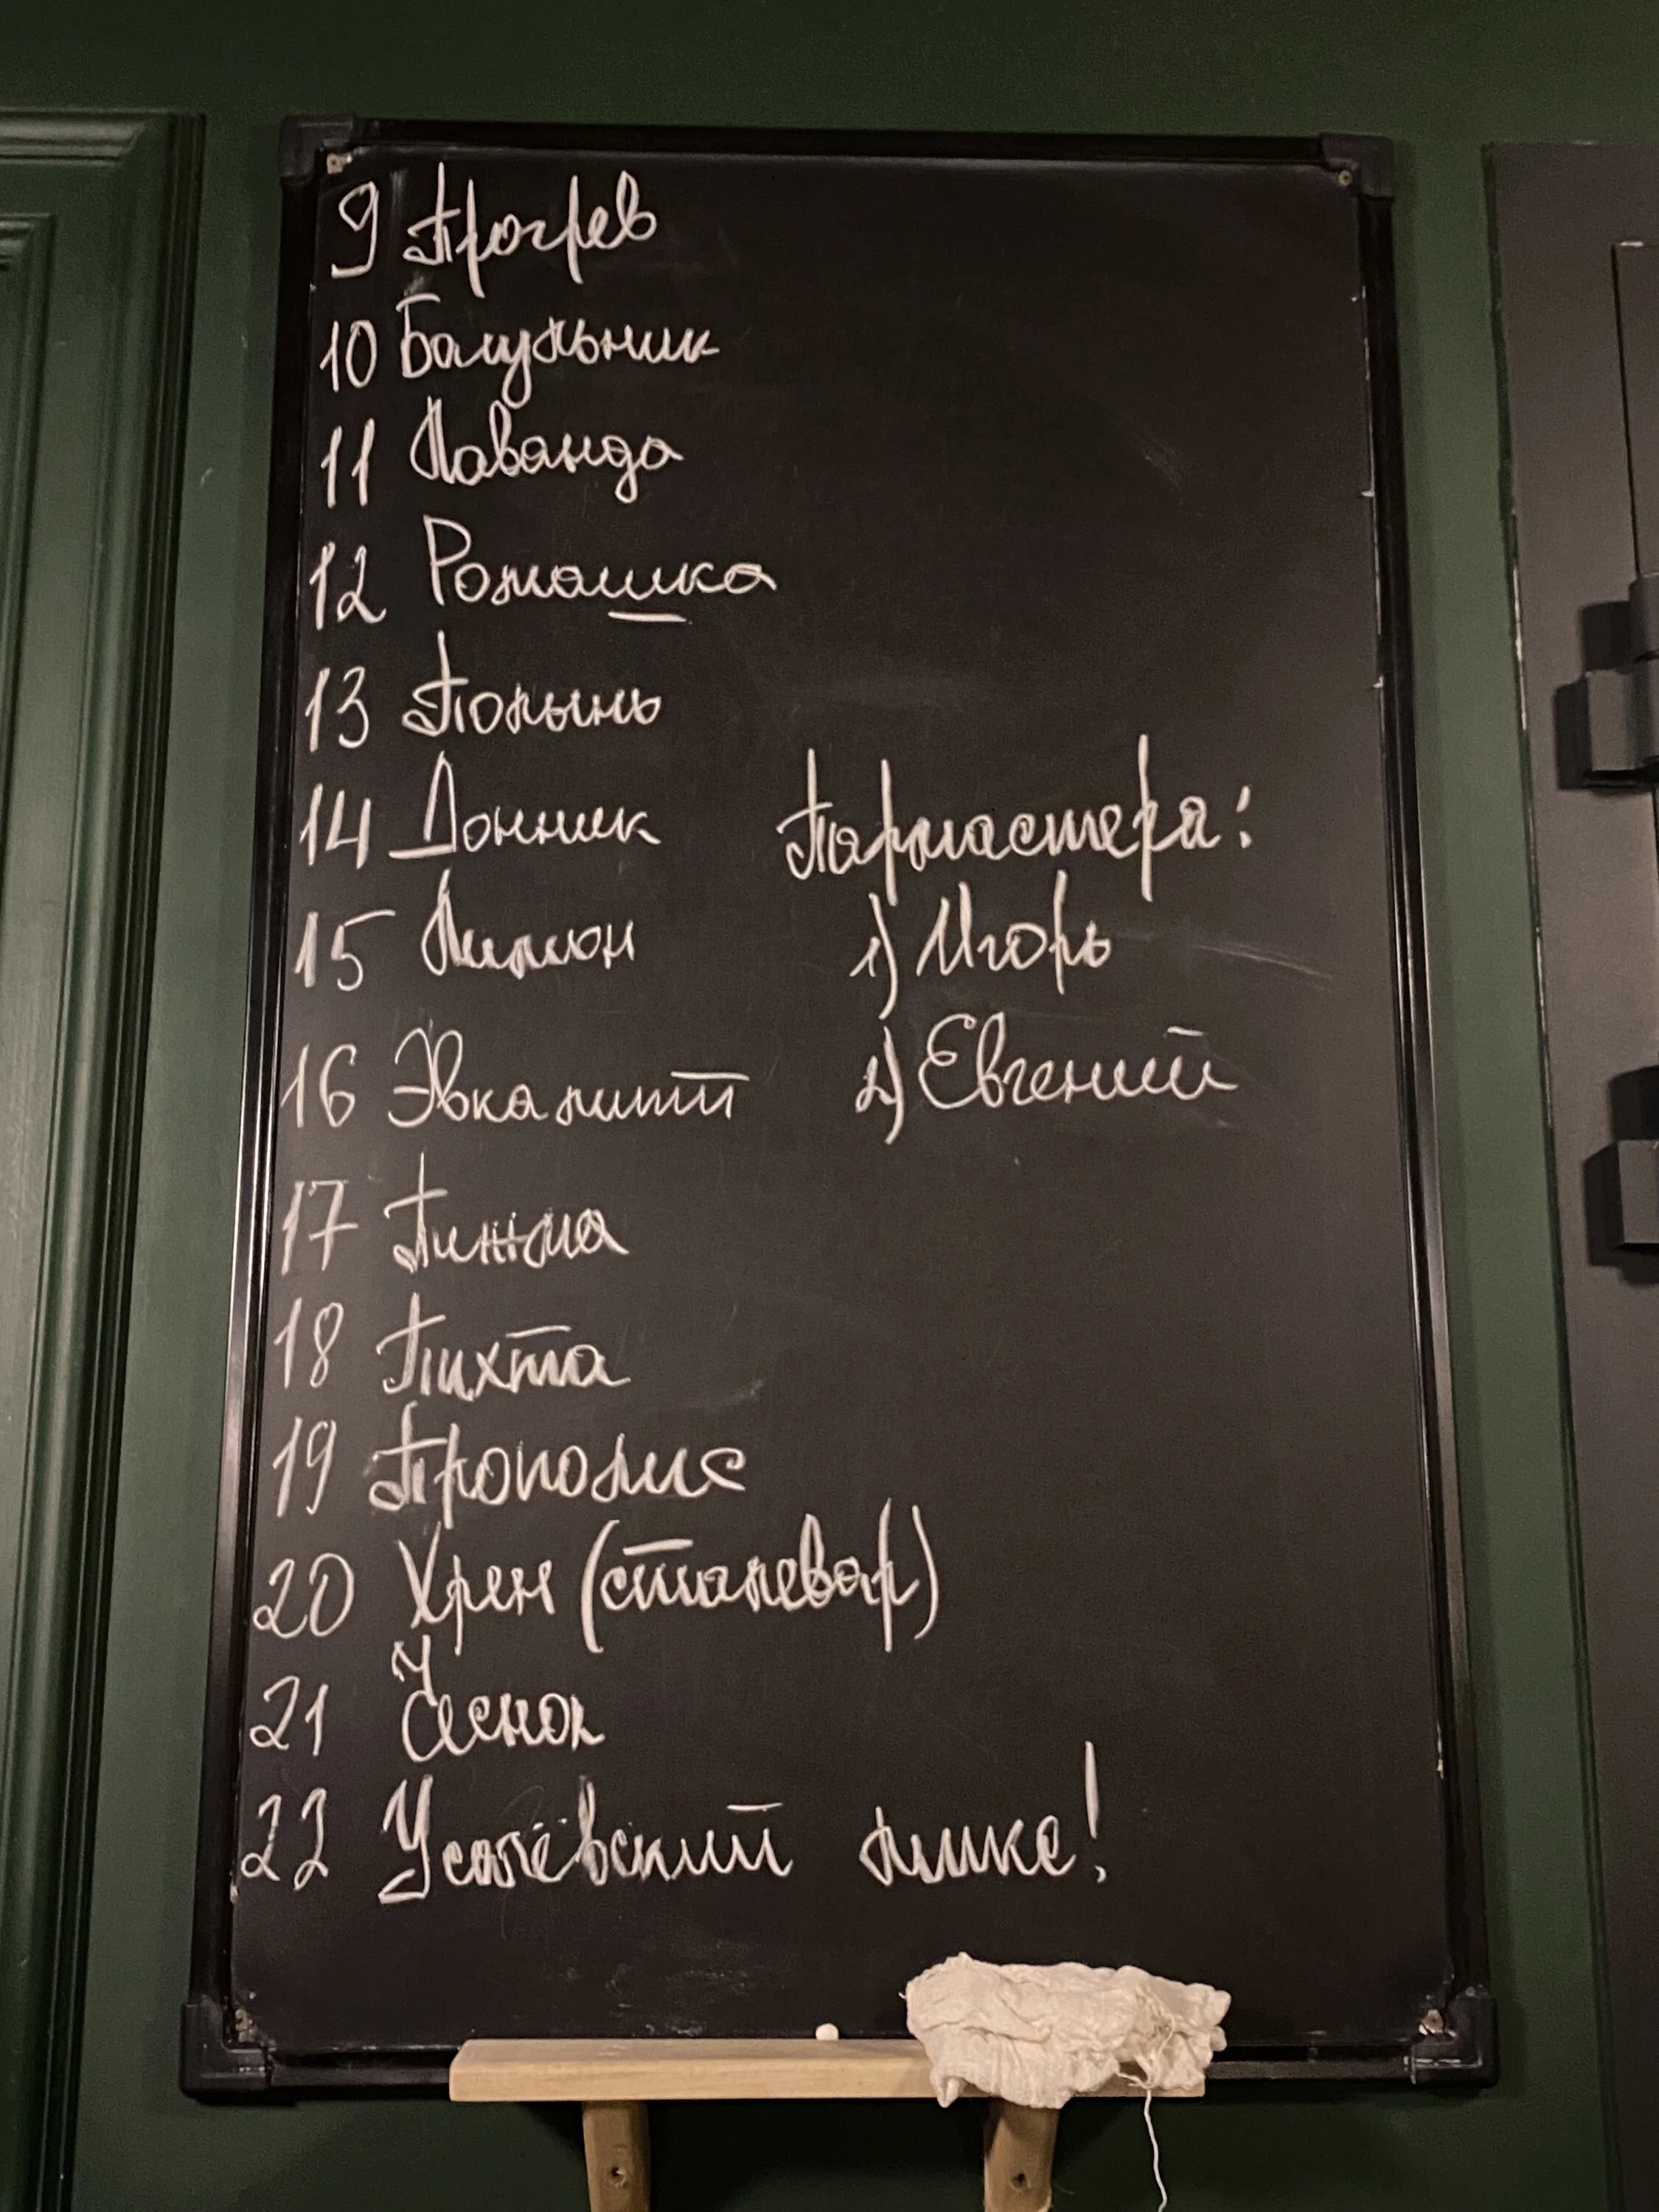 9 Прогрев
10 Багульник
11 Лаванда
12 Ромашка
13 Полынь
14 Донник
15 Лимон
16 Эвкалипт
17 Пижма
18 Пихта
19 Прополис
20 Хрен (сталевар)
21 Чеснок
22 Усачёвский микс!
Пармастера:
1) Игорь
2) Евгений